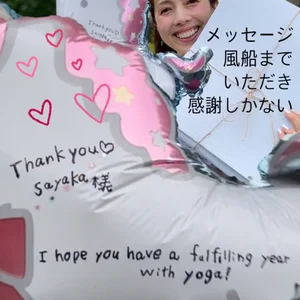 メッセージ
風船まで
いただき
感謝しかない
Thank you♡
Sayaka様
I hope you have a fulfilling year
with yoga!